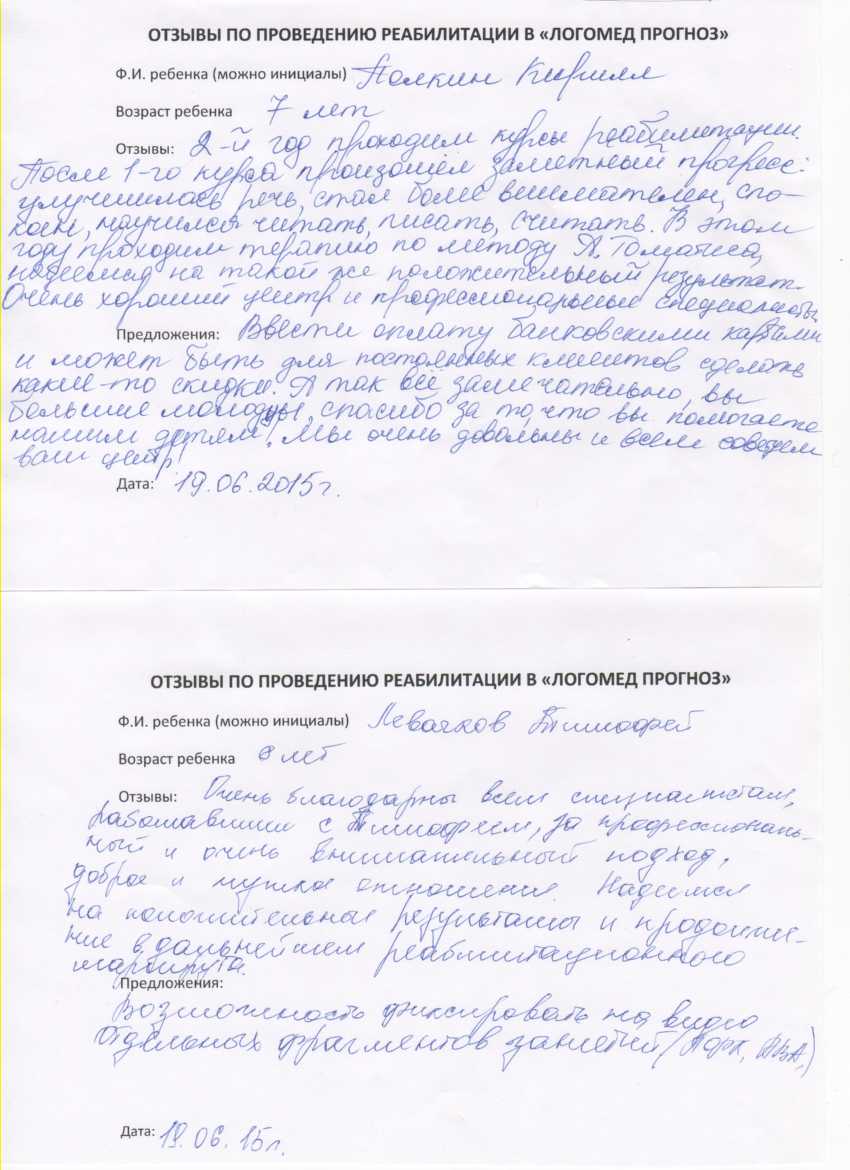 ОТЗЫВЫ ПО ПРОВЕДЕНИЮ РЕАБИЛИТАЦИИ В «ЛОГОМЕД ПРОГНОЗ»
Ф.И. ребенка (можно инициалы) Полкин Кирилл
Возраст ребенка 7 лет
Отзывы: 2-й год проходим курсы реабилитации.
После 1-го курса произошёл заметный прогресс:
улучшилась речь, стал более внимателен, спо-
коен, научился читать, писать, считать. В этом
году проходим терапию по методу А. Томатиса,
надеемся на такой же положительный результат.
Очень хороший центр и профессиональные специалисты.
Предложения: Ввести оплату банковскими картами
и может быть для постоянных клиентов сделать
какие-то скидки. А так всё замечательно, вы
большие молодцы, спасибо за то, что вы помогаете
нашим детям! Мы очень довольны и всем советуем
ваш центр!
Дата: 19.06.2015г.
ОТЗЫВЫ ПО ПРОВЕДЕНИЮ РЕАБИЛИТАЦИИ В «ЛОГОМЕД ПРОГНОЗ»
Ф.И. ребенка (можно инициалы) Левачков Тимофей
Возраст ребенка лет
Отзывы: Очень благодарны всем специалистам,
работавшим с Тимофеем, за профессиональ-
ный и очень внимательный подход,
доброе и чуткое отношение. Надеемся
на положительные результаты и продолже-
ние в дальнейшем реабилитационного
маршрута.
Предложения:
Возможность фиксировать на видео
отдельных фрагментов занятий
Дата: 19.06.15г.